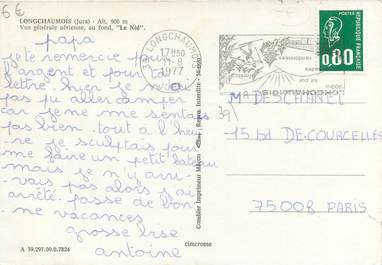 6€
LONGCHAUMOIS (Jura) - Alt. 900 m
Vue générale aérienne, au fond, "Le Nid".
papa
je te remercie pour
l'argent et pour la
lettre. hier je ne
pas pu aller camper
car je me sentais
pas bien. tout à l'heur
re je sculptais pour
me faire un petit bateau
mais je n'y arri-
vais pas alors j'ai
arrêté. passe de bon-
ne vacances
grosse bise
antoine
A 39.297.00.0.7824
Combier Imprimeur Mâcon
Repro. Interdite
cimcrome
LONGCHAUMOIS
17H30
11-8
1977
LONGCHAUMOIS
randonnées
POSTES
0,80
REPUBLIQUE FRANÇAISE
39
Mr DESCHANEL
15 bd DE COURCELLES
75008 PARIS